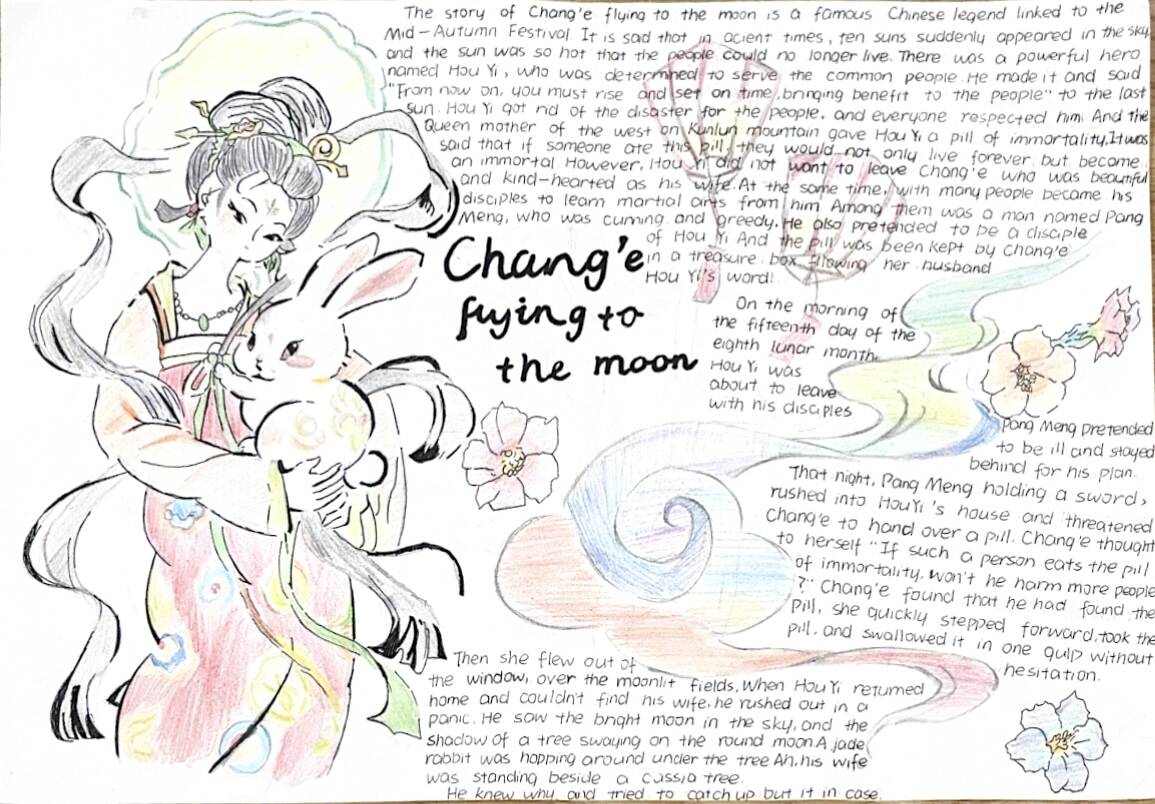 The story of Chang'e flying to the moon is a famous Chinese legend linked to the
Mid-Autumn Festival. It is said that in acient times, ten suns suddenly appeared in the sky
and the sun was so hot that the people could no longer live. There was a powerful hero
named Hou Yi, who was determined to serve the common people. He made it and said
"From now on, you must rise and set on time, bringing benefit to the people" to the last
sun. Hou Yi got rid of the disaster for the people, and everyone respected him. And the
Queen mother of the west on Kunlun mountain gave Hou Yi a pill of immortality. It was
said that if someone ate this pill, they would not only live forever but become
an immortal However, Hou Yi did not want to leave Chang'e who was beautiful
and kind-hearted as his wife. At the same time, with many people became his
disciples to learn martial arts from him Among them was a man named Pang
Meng, who was cuming and greedy. He also pretended to be a disciple
of Hou Yi And the pill was been kept by Chang'e
in a treasure box fllowing her husband
Hou Yi's word!
Chang'e
flying to
the moon
On the morning of
the fifteenth day of the
eighth lunar month
Hou Yi was
about to leave
with his disciples
Pang Meng pretended
to be ill and stayed
behind for his plan.
That night, Pang Meng holding a sword,
rushed into Hou Yi's house and threatened
Chang'e to hand over a pill. Chang'e thought
to herself "If such a person eats the pill
of immortality, won't he harm more people
?" Chang'e found that he had found the
Pill, she quickly stepped forward, took the
pill, and swallowed it in one gulp without
hesitation.
Then she flew out of
the window, over the moonlit fields, When Hou Yi returned
home and couldn't find his wife, he rushed out in a
panic. He saw the bright moon in the sky, and the
shadow of a tree swaying on the round moon A jade
rabbit was hopping around under the tree Ah, his wife
was standing beside a cassia tree.
He knew why and tried to catch up but it in case.